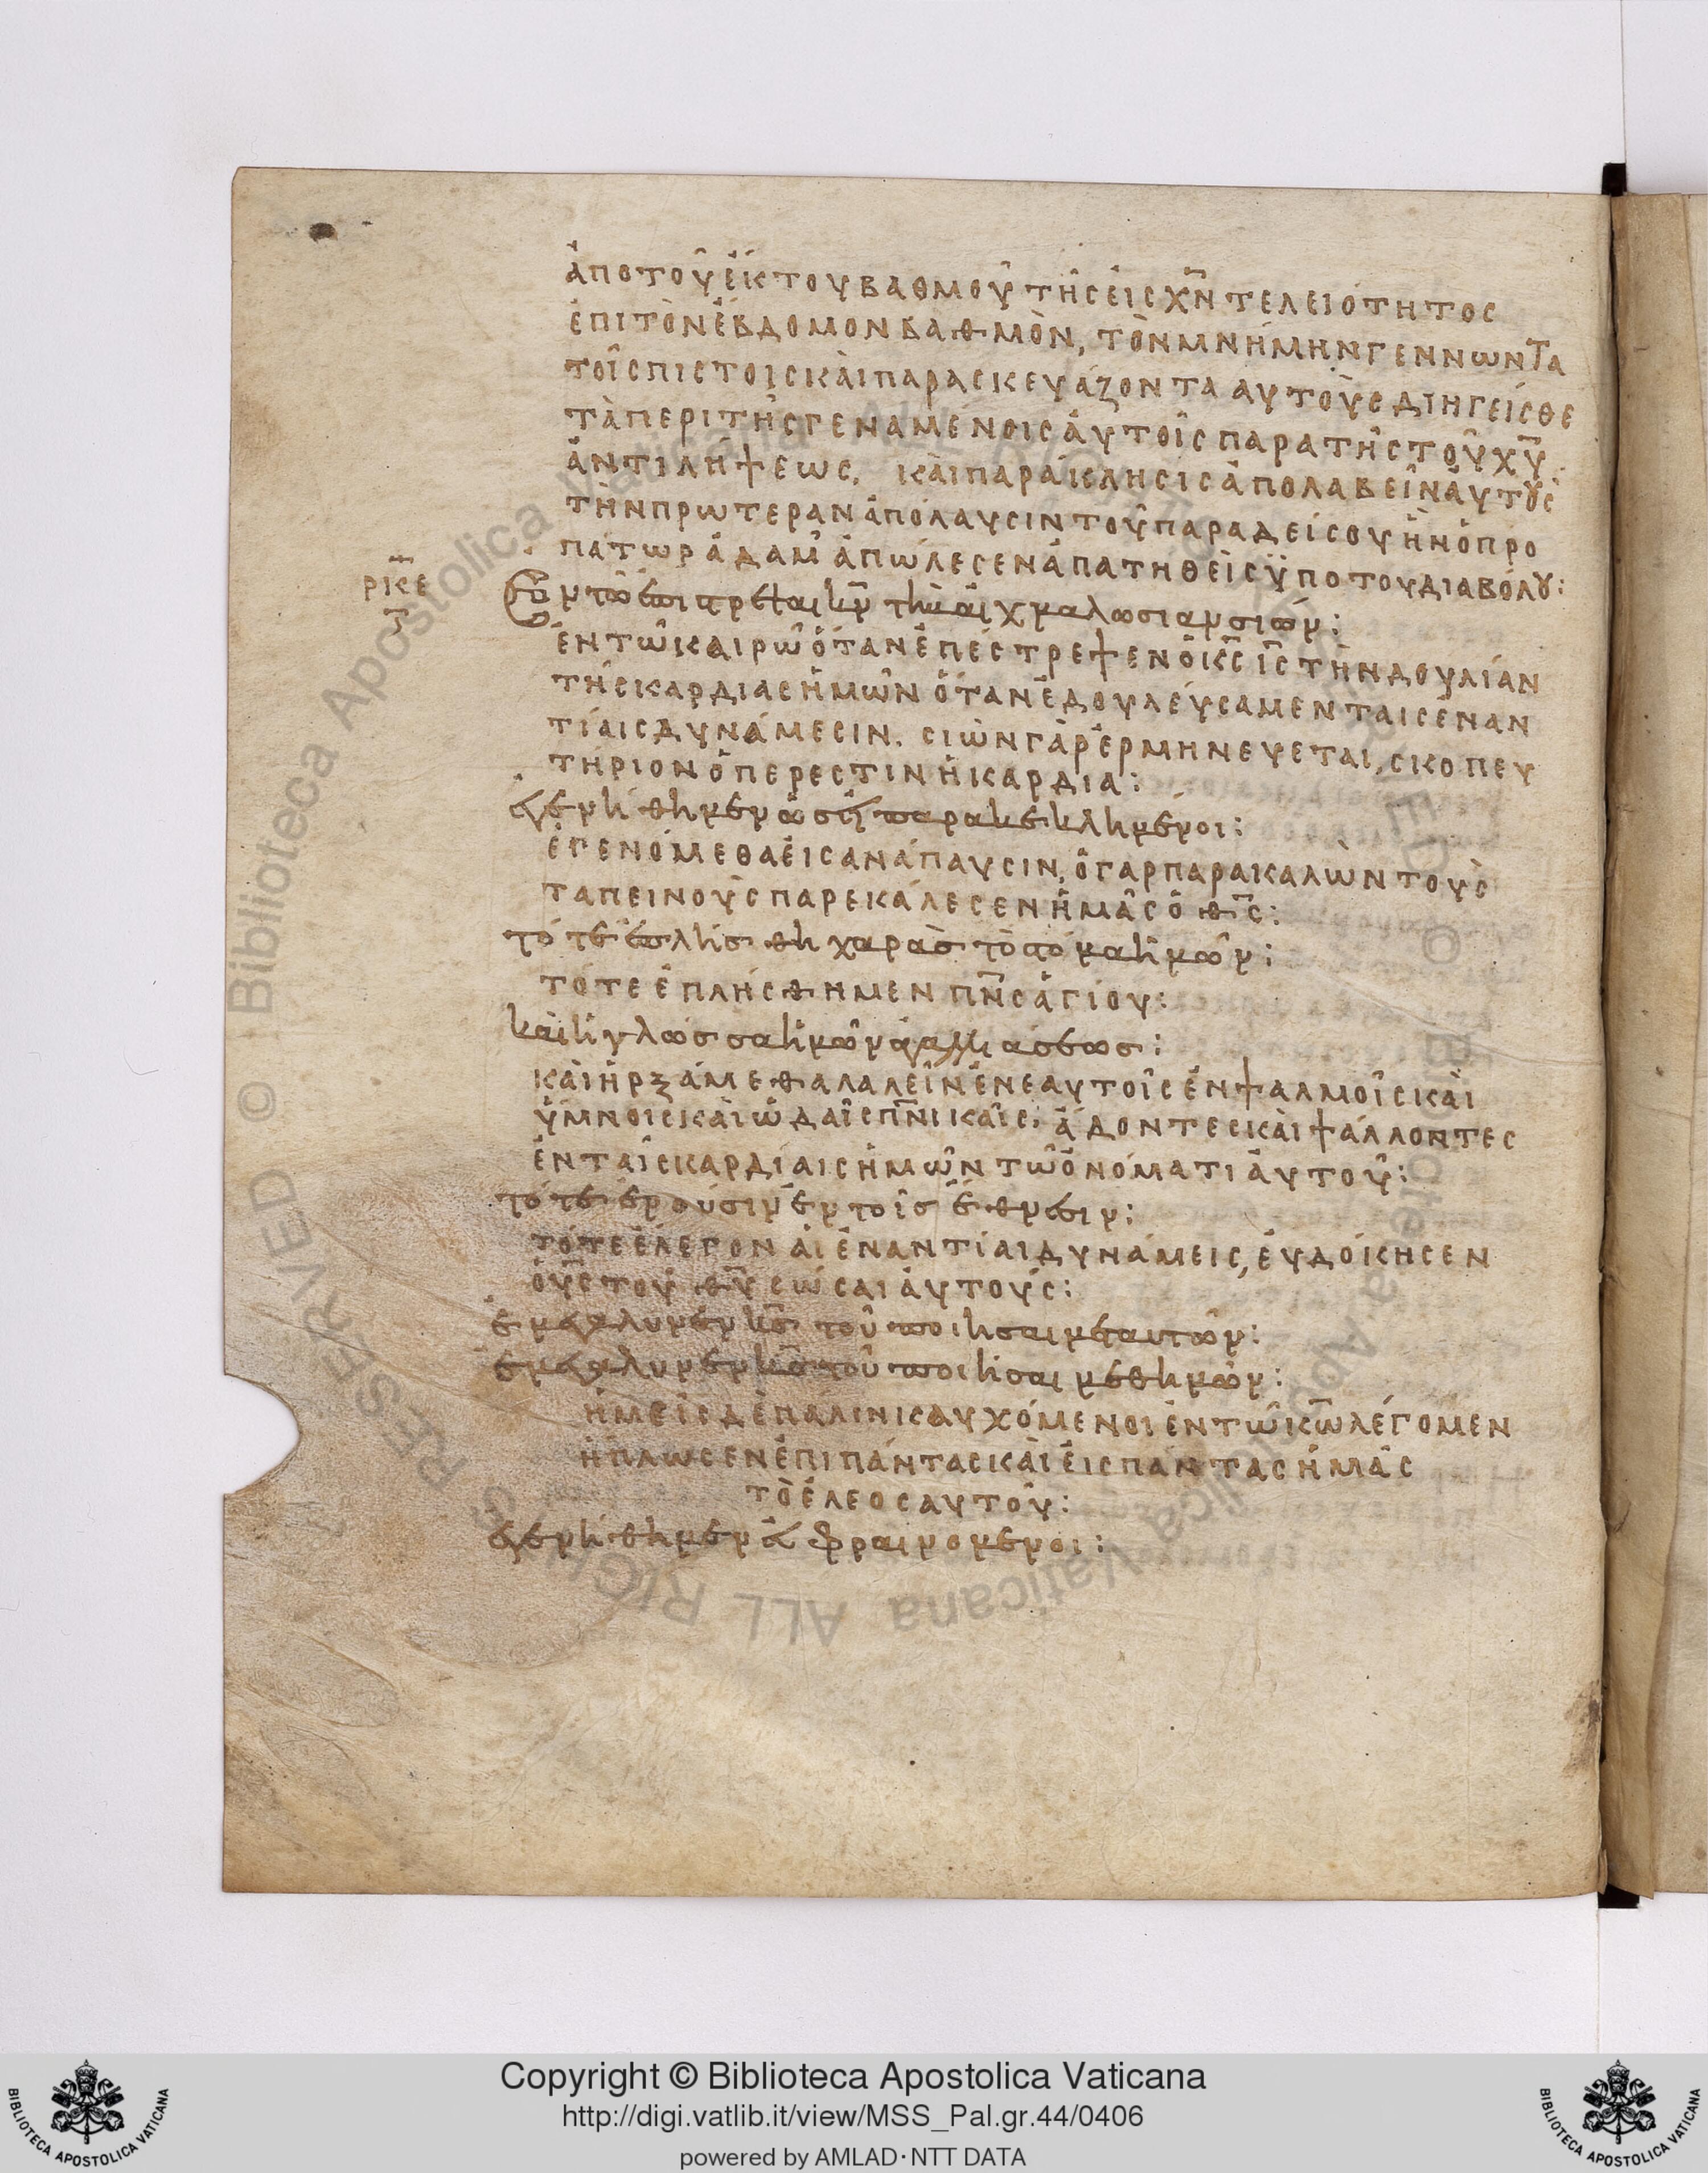 ἀπὸ τοῦ ἕκτου βαθμοῦ τῆς εἰς χ̅ν̅ τελειότητος
ἐπὶ τὸν ἕβδομον βαθμὸν, τὸν μνήμην γεννωντα
τοῖς πιστοις καὶ παρασκευάζοντα αὐτοὺς διηγεῖσθε
τὰ περὶ τῆς γεναμενοις αὐτοῖς παρα τῆς τοῦ χ̅υ̅
ἀντιλήψεως, καὶ παράκλησις ἀπολαβεῖν αὐτοὺς
τὴν πρωτεραν ἀπόλαυσιν τοῦ παραδείσου ἣν ὁ προ
πάτωρ ἀδαμ ἀπώλεσεν ἀπατηθεὶς ὑπο του διαβόλου:
ρκε
Ἐν τῶ ἐπιστρέψαι κ̅ν̅ τὴν αἰχμαλωσιαν σιών:
ἐν τῶ καιρῶ ὅταν ἐπέστρεψεν ὁ κ̅ς̅ ι̅ς̅ τὴν δουλίαν
τῆς καρδιας ἡμῶν ὅταν ἐδουλεύσαμεν ταις ἐναν
τίαις δυνάμεσιν. σιὼν γὰρ ἑρμηνευεται, σκοπευ
τήριον ὅπερ εστιν ἡ καρδία:
ἐγενήθημεν ὡσεὶ παρακεκλημένοι:
ἐγενόμεθα εἰς ανάπαυσιν, ὁ γαρ παρακαλὼν τοὺς
ταπεινοὺς παρεκάλεσεν ἡμᾶς ὁ θ̅ς̅:
τότε ἐπλήσθη χαρᾶς τὸ στόμα ἡμῶν:
τότε ἐπλήσθημεν π̅ν̅ς̅ ἁγίου:
καὶ ἡ γλῶσσα ἡμῶν ἀγαλλιάσεως:
καὶ ἠρξάμεθα λαλεῖν ἐν εαυτοῖς ἐν ψαλμοῖς καὶ
ὕμνοις καὶ ὠδαῖς π̅ν̅ικαῖς, ἄδοντες καὶ ψάλλοντες
ἐν ταῖς καρδίαις ἡμῶν τῶ ὀνόματι αὐτοῦ:
τότε ἐροῦσιν ἐν τοῖς ἔθνεσιν:
τότε ἔλεγον αἱ ἐναντίαι δυνάμεις, εὐδόκησεν
ὁ υ̅ς̅ τοῦ θ̅υ̅ σῶσαι αὐτοὺς:
ἐμεγάλυνεν κ̅ς̅ τοῦ ποιῆσαι μετ αυτῶν:
ἐμεγάλυνεν κ̅ς̅ τοῦ ποιῆσαι μεθ ἡμῶν:
ἡμεῖς δὲ πάλιν καυχόμενοι ἐν τῶ κ̅ω̅ λέγομεν
ἥπλωσεν ἐπι πάντας καὶ εἰς πάντας ἡμᾶς
τὸ ἔλεος αυτοῦ:
ἐγενήθημεν εὐφραινομενοι:
Copyright © Biblioteca Apostolica Vaticana
http://digi.vatlib.it/view/MSS_Pal.gr.44/0406
powered by AMLAD·NTT DATA
BIBLIOTECA APOSTOLICA VATICANA
BIBLIOTECA APOSTOLICA VATICANA